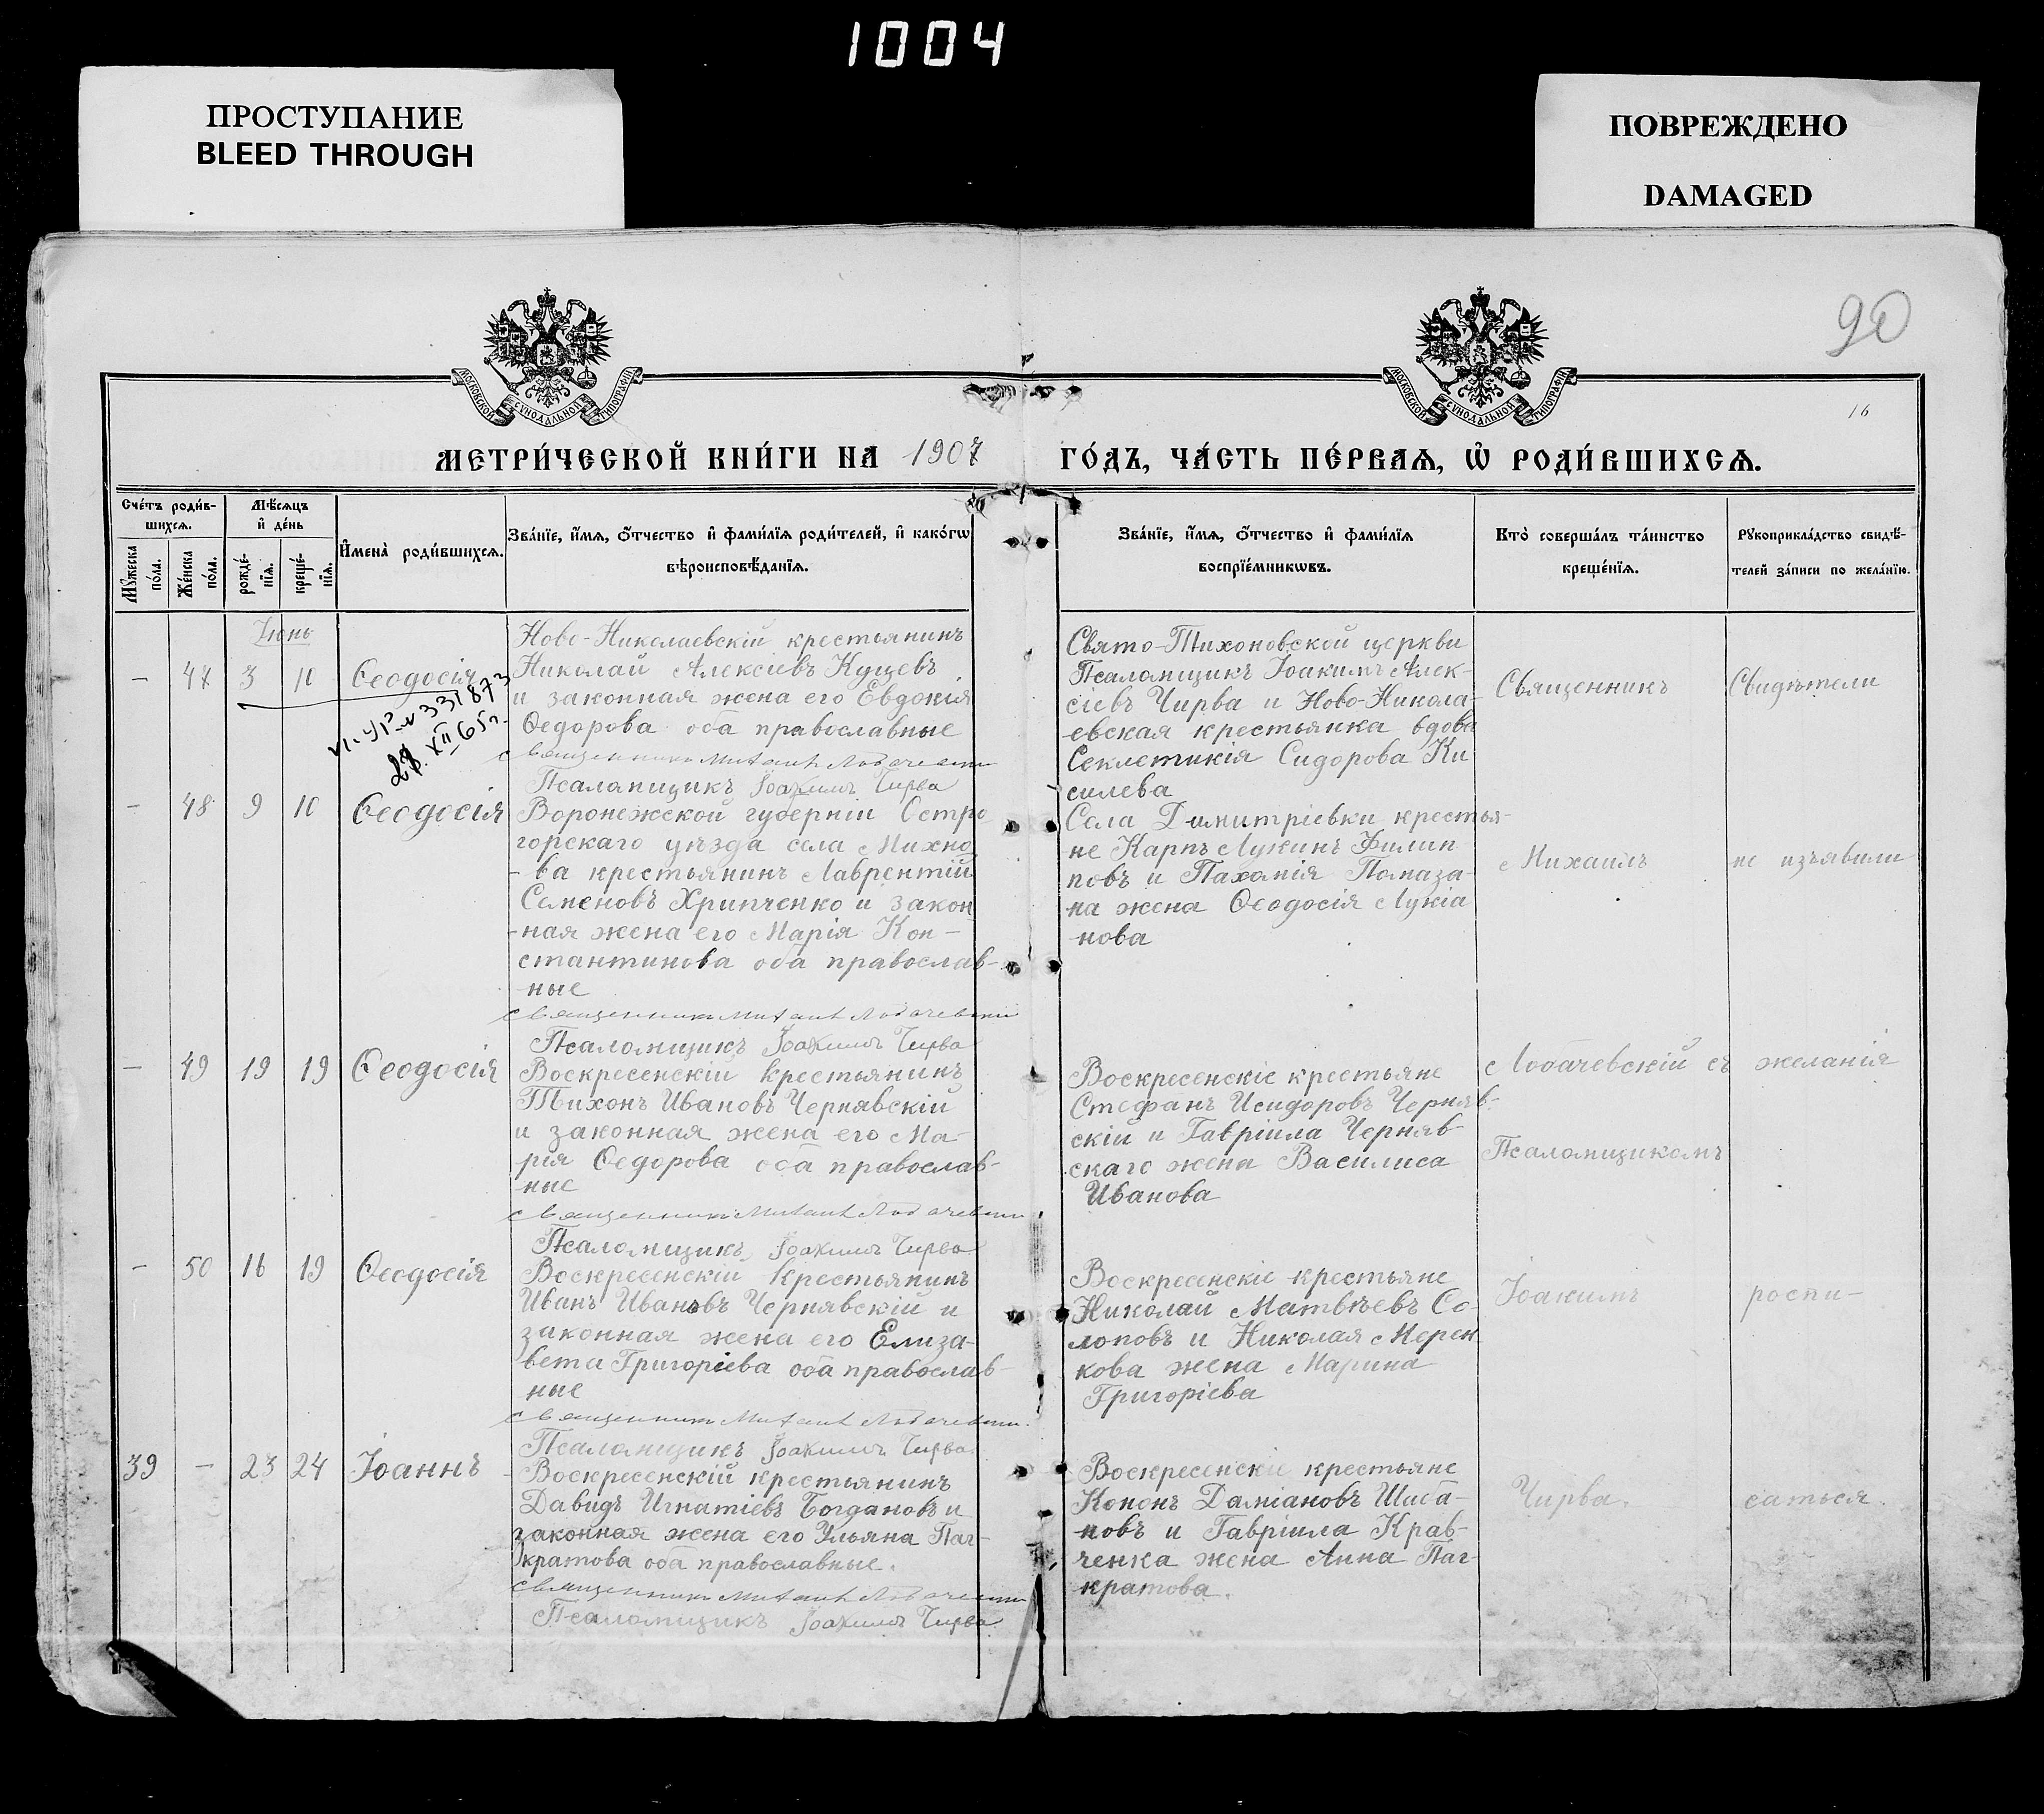 1004
ПРОСТУПАНИЕ
BLEED THROUGH
ПОВРЕЖДЕНО
DAMAGED
90
16
МОСКОВСКОЙ СѴНОДАЛЬНОЙ ТИПОГРАФІИ
МОСКОВСКОЙ СѴНОДАЛЬНОЙ ТИПОГРАФІИ
МЕТРИ́ЧЕСКОЙ КНИ́ГИ НА 1907 ГО́ДЪ, ЧА́СТЬ ПЕ́РВАѦ, Ѡ҆ РОДИ́ВШИХСѦ.
Сче́тъ роди́в-
шихсѧ.
Мꙋ́жеска по́ла.
Же́нска по́ла.
Мѣ́сѧцъ
и҆ де́нь
рожде́-
нїѧ.
креще́-
нїѧ.
И҆мена̀ роди́вшихсѧ.
Зва́нїе, и҆́мѧ, ѻ҆́тчество и҆ фами́лїѧ роди́телей, и҆ како́гѡ
вѣроисповѣ́данїѧ.
Зва́нїе, и҆́мѧ, ѻ҆́тчество и҆ фами́лїѧ
воспрїе́мникѡвъ.
Кто̀ соверша́лъ та́инство
креще́нїѧ.
Рꙋкоприкла́дство свидѣ́-
телей за́писи по жела́нїю.
Іюнь
- 47 3 10 Ѳеодосія
331873
XII 65г.
Ново-Николаевскій крестьянинъ
Николай Алексіевъ Кущевъ
и законная жена его Евдокія
Ѳедорова оба православные
Священникъ Михаилъ Лобачевскій
Псаломщикъ Іоакимъ Чирва
Свято-Тихоновской церкви
Псаломщикъ Іоакимъ Алек-
сіевъ Чирва и Ново-Никола-
евская крестьянка вдова
Секлетикія Сидорова Ки
силева
Священникъ
Свидѣтели
- 48 9 10 Ѳеодосія
Воронежской губерніи Остро
горскаго уѣзда села Михно
-ва крестьянинъ Лаврентій
Семеновъ Хрипченко и закон
-ная жена его Марія Кон-
стантинова оба православ-
ные
Священникъ Михаилъ Лобачевскій
Псаломщикъ Іоакимъ Чирва
Села Димитріевки крестья-
не Карпъ Лукинъ Филип
повъ и Пахомія Помаза-
на жена Ѳеодосія Лукіа
нова
Михаилъ
не изъявили
- 49 19 19 Ѳеодосія
Воскресенскій крестьянинъ
Тихонъ Ивановъ Чернявскій
и законная жена его Ма-
рія Ѳедорова оба православ-
ные
Священникъ Михаилъ Лобачевскій
Псаломщикъ Іоакимъ Чирва
Воскресенскіе крестьяне
Стефанъ Исидоровъ Черняв-
скій и Гавріила Черняв-
скаго жена Василиса
Иванова
Лобачевскій съ
Псаломщикомъ
желанія
- 50 16 19 Ѳеодосія
Воскресенскій крестьянинъ
Иванъ Ивановъ Чернявскій и
законная жена его Елиза-
вета Григоріева оба православ-
ные
Священникъ Михаилъ Лобачевскій
Псаломщикъ Іоакимъ Чирва
Воскресенскіе крестьяне
Николай Матвѣевъ Со-
лоповъ и Николая Мерен
кова жена Марина
Григоріева
Іоакимъ
роспи-
39 - 23 24 Іоаннъ
Воскресенскій крестьянинъ
Давидъ Игнатіевъ Богдановъ и
законная жена его Ульяна Паг-
кратова оба православные.
Священникъ Михаилъ Лобачевскій
Псаломщикъ Іоакимъ Чирва
Воскресенскіе крестьяне
Кононъ Даміановъ Шаба-
новъ и Гавріила Крав-
ченка жена Анна Паг-
кратова.
Чирва.
саться.